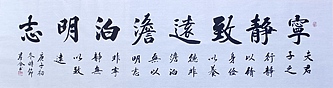 寧靜致遠澹泊明志
夫君子之行靜以修身儉以養德非澹泊無以明志非寧靜無以致遠